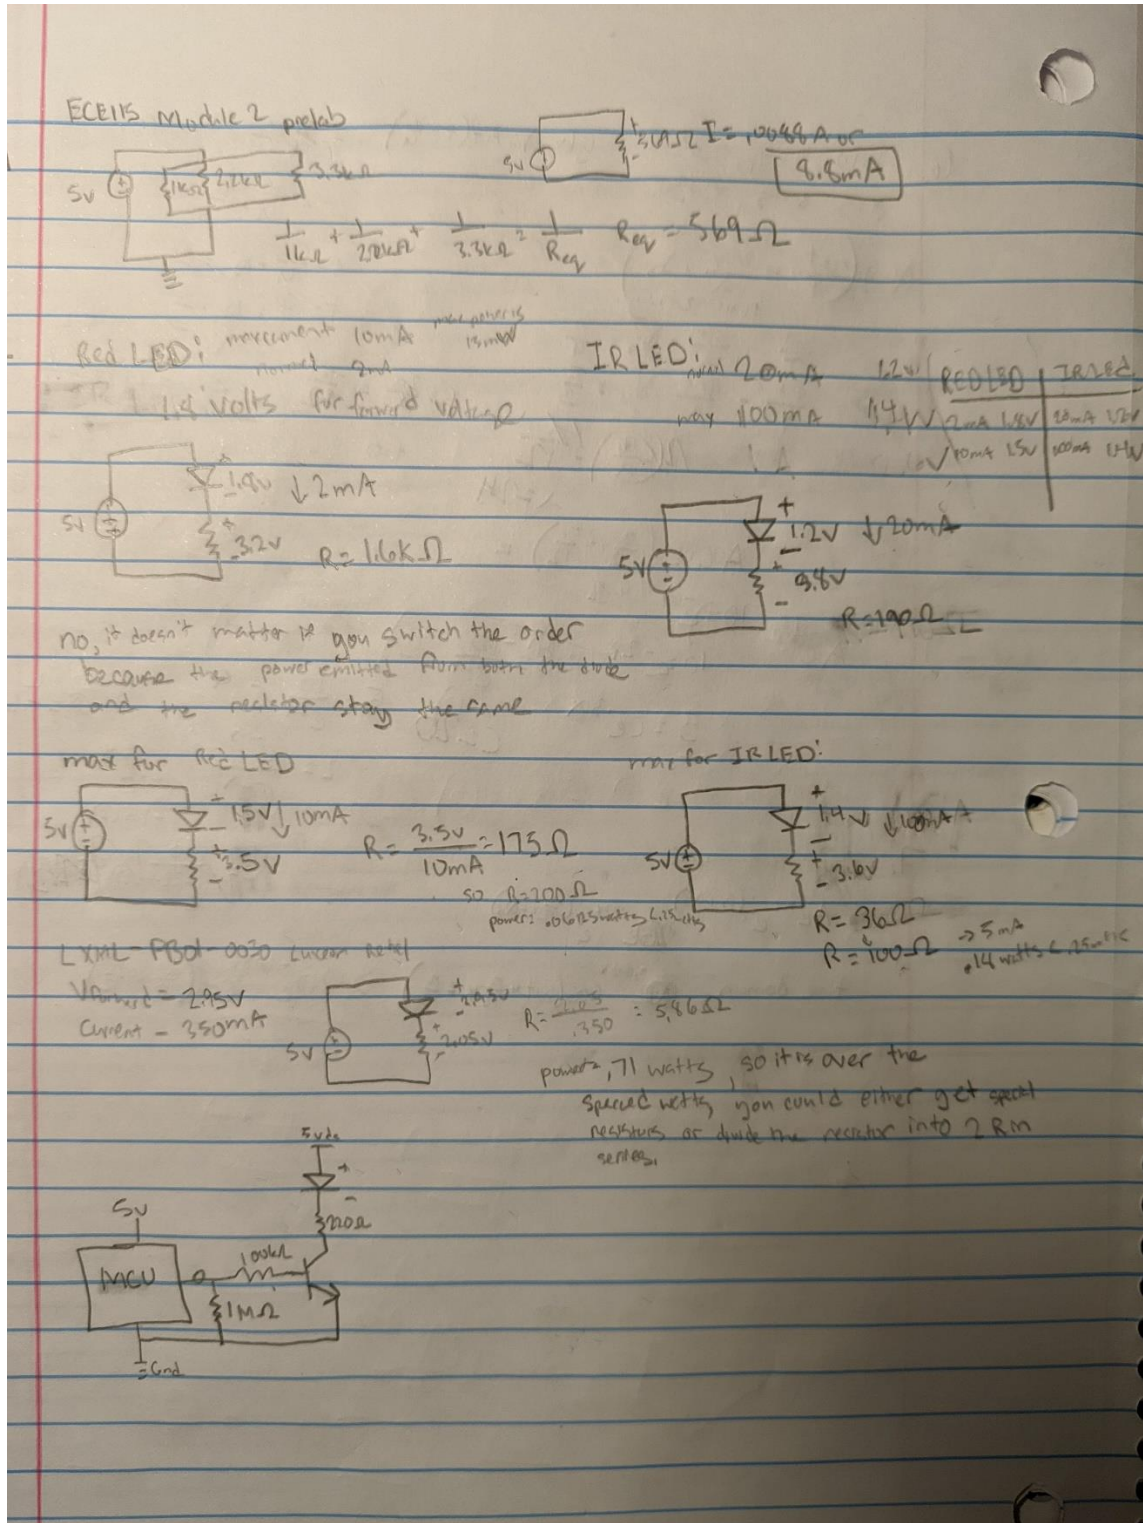 ECE115 Module 2 prelab
5v 1kΩ 2.2kΩ 3.3kΩ
5v + - 569Ω I = .0088A or
8.8mA
1/1kΩ + 1/2.2kΩ + 1/3.3kΩ = 1/Req Req = 569Ω
Red LED: 10mA max power is
normal 2mA
1.8 volts for forward voltage
IR LED: normal 20mA 1.2v
max 100mA 1.4V
RED LED | IR Led
2mA 1.8V | 20mA 1.2V
10mA 1.5v | 100mA 1.4v
5v + - 1.8v ↓2mA
+ - 3.2v R= 1.6KΩ
5V + - 1.2V ↓20mA
+ - 3.8v
R=190Ω
no, it doesn't matter if you switch the order
because the power emitted from both the diode
and the resistor stay the same
max for Red LED
5v + - 1.5V ↓10mA
+ - 3.5V
R= 3.5v/10mA = 175Ω
so R=200Ω
power= .06125watts <.25
max for IR LED:
5V + - 1.4v ↓100mA
+ - 3.6v
R= 36Ω
R= 100Ω → 5mA
.14 watts <
LXML-PB01-0030
Vforward = 2.95V
Current - 350mA
5v + - 2.95v
+ - 2.05v
R= 2.05/.350 = 5.86Ω
power= .71 watts, so it is over the
you could either get special
resistors or divide the resistor into 2 R in
series.
5vdc
+
-
220Ω
5v
MCU 100kΩ
1MΩ
Gnd